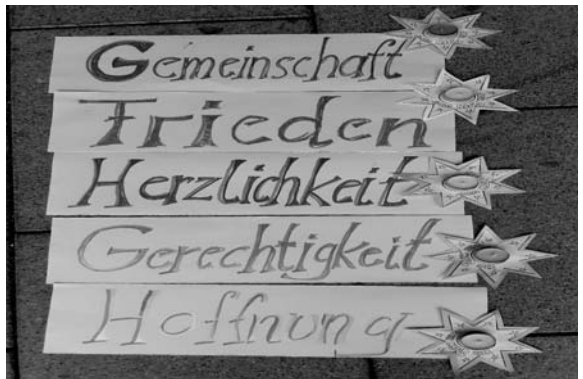 Gemeinschaft
Frieden
Herzlichkeit
Gerechtigkeit
Hoffnung